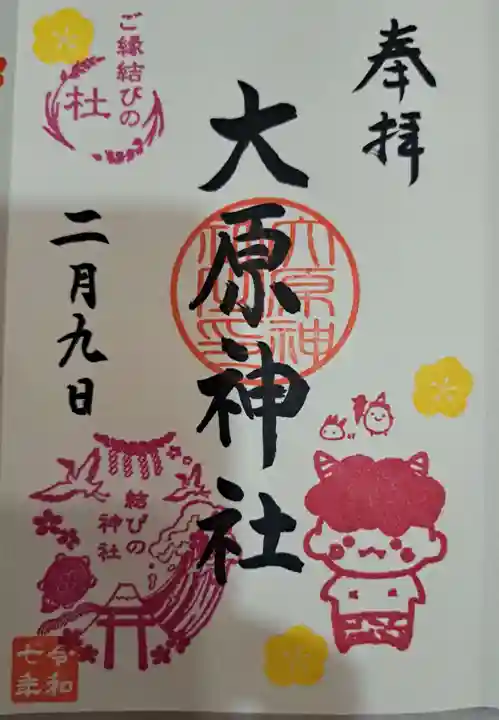 奉拝
大原神社
大原神社印
ご縁結びの
杜
二月九日
結びの
神社
令和
七年